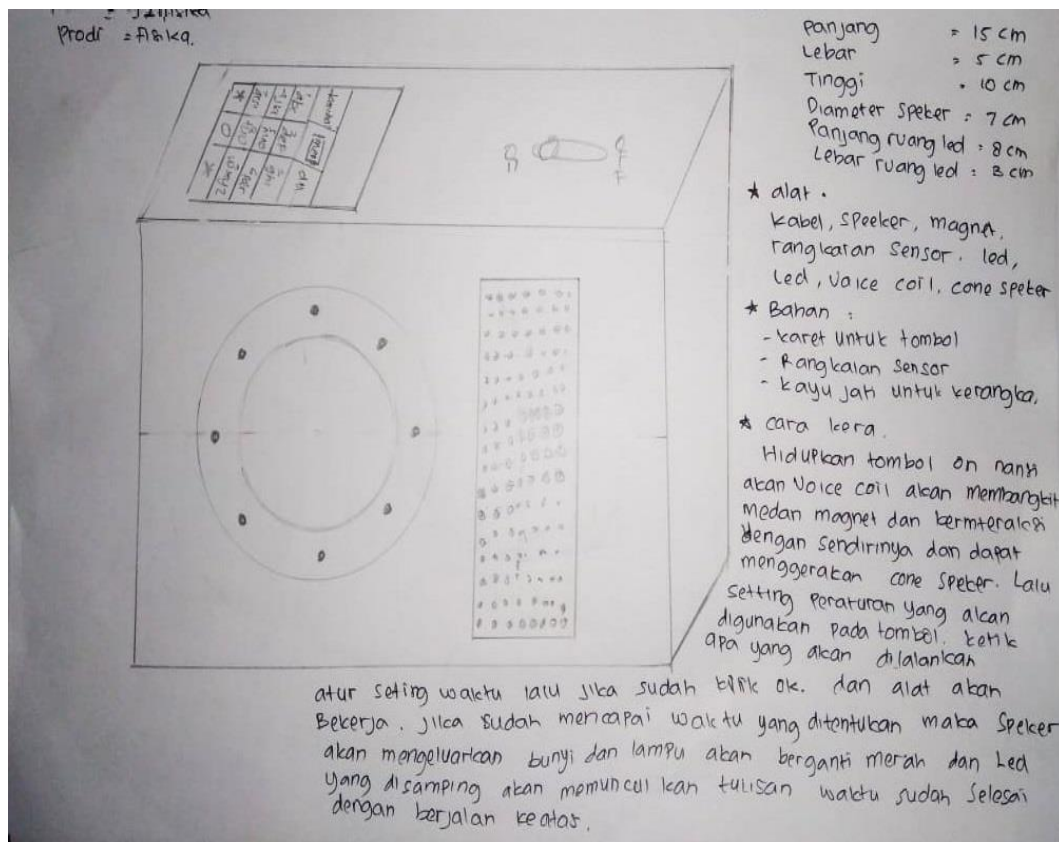 Prodi = Fisika.
Panjang = 15 cm
Lebar = 5 cm
Tinggi = 10 cm
Diameter Speker = 7 cm
Panjang ruang led = 8 cm
Lebar ruang led = 3 cm
* alat.
kabel, speeker, magnet,
rangkaian sensor. led,
Led, voice coil, cone speker
* Bahan :
- karet untuk tombol
- Rangkaian Sensor
- kayu jati untuk kerangka.
* cara kera.
Hidupkan tombol on nanti
akan Voice coil akan membangkit
medan magnet dan berinteraksi
dengan sendirinya dan dapat
menggerakan cone speker. Lalu
setting Peraturan yang akan
digunakan pada tombol. ketik
apa yang akan dijalankan
atur seting waktu lalu jika sudah klik ok. dan alat akan
Bekerja. Jika sudah mencapai waktu yang ditentukan maka Speker
akan mengeluarkan bunyi dan lampu akan berganti merah dan Led
yang disamping akan memunculkan tulisan waktu sudah selesai
dengan berjalan keatas.